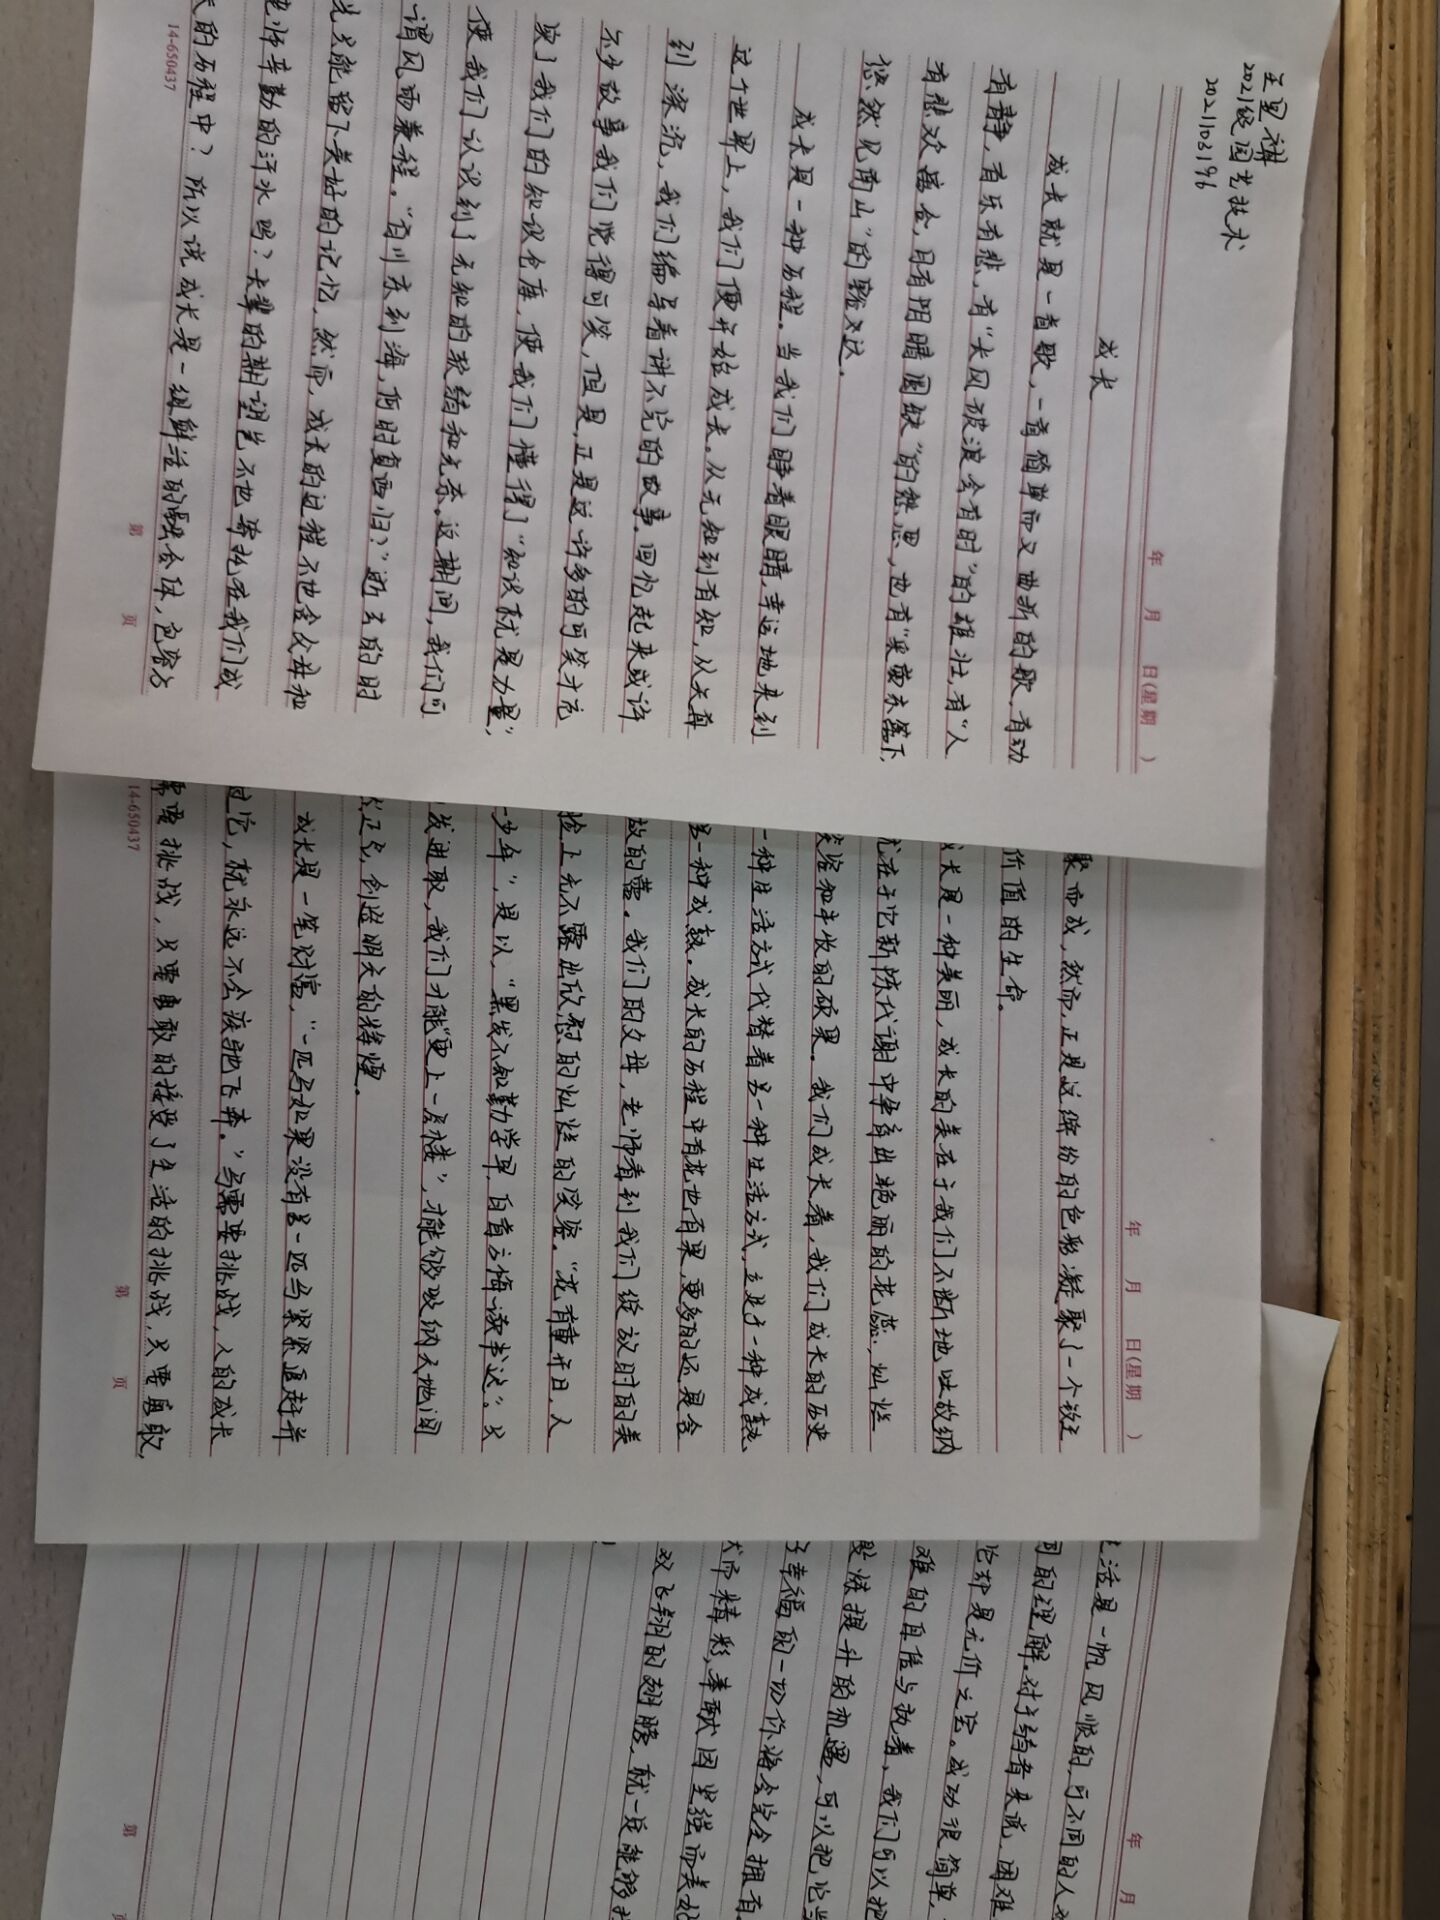 王思祺
2021级园艺技术
2021103196
年 月 日(星期 )
成长
成长就是一首歌,一首简单而又曲折的歌,有动
有静,有乐有悲,有“长风破浪会有时”的雄壮,有“人
有悲欢离合,月有阴晴圆缺”的愁思,也有“采菊东篱下,
悠然见南山”的豁达。
成长是一种历程。当我们睁着眼睛,幸运地来到
这个世界上,我们便开始成长。从无知到有知,从天真
到深沉,我们编写着讲不完的故事。回忆起来或许
不少故事我们觉得可笑,但是,正是这许多的可笑才充
实了我们的知识仓库,使我们懂得了“知识就是力量”,
使我们认识到了无知的软弱和无奈。这期间,我们可
谓风雨兼程。“百川东到海,何时复西归?”逝去的时
光只能留下美好的记忆,然而,成长的过程不也含父母和
老师辛勤的汗水吗?长辈的期望岂不也寄托在我们成
长的历程中?所以说成长是一组鲜活的融合体,色彩方
14-650437
第 页
年 月 日(星期 )
聚而成,然而,正是这缤纷的色彩凝聚了一个被王
价值的生命。
成长是一种美丽,成长的美在于我们不断地吐故纳
就在于它新陈代谢中孕育出艳丽的花蕊,灿烂
笑容和丰收的硕果。我们成长着,我们成长的历史
一种生活方式代替着另一种生活方式,立足于一种成熟
另一种成熟。成长的历程中有花也有果,更多的还是含
放的蕾。我们的父母,老师看到我们绽放时的美
脸上无不露出欣慰的灿烂的笑容。“花有重开日,人
少年”,是以,“黑发不知勤学早,白首方悔读书迟”。只
发进取,我们才能“更上一层楼”,才能够吸纳天地间
正气,创造明天的辉煌。
成长是一笔财富,“一匹马如果没有另一匹马紧紧追赶并
过它,就永远不会疾驰飞奔。”马需要挑战,人的成长
需要挑战,只要勇敢的接受了生活的挑战,只要勇敢,
14-650437
第 页
年 月
生活是一帆风顺的,可不同的人对
同的理解。对于弱者来说,困难
它却是无价之宝。成功很简单,
难的自信与执着,我们可以把
锻炼提升的机遇,可以把它当
幸福的一切你将会完全拥有。
精彩,奉献因坚强而美好
双飞翔的翅膀,就一定能够
第 页